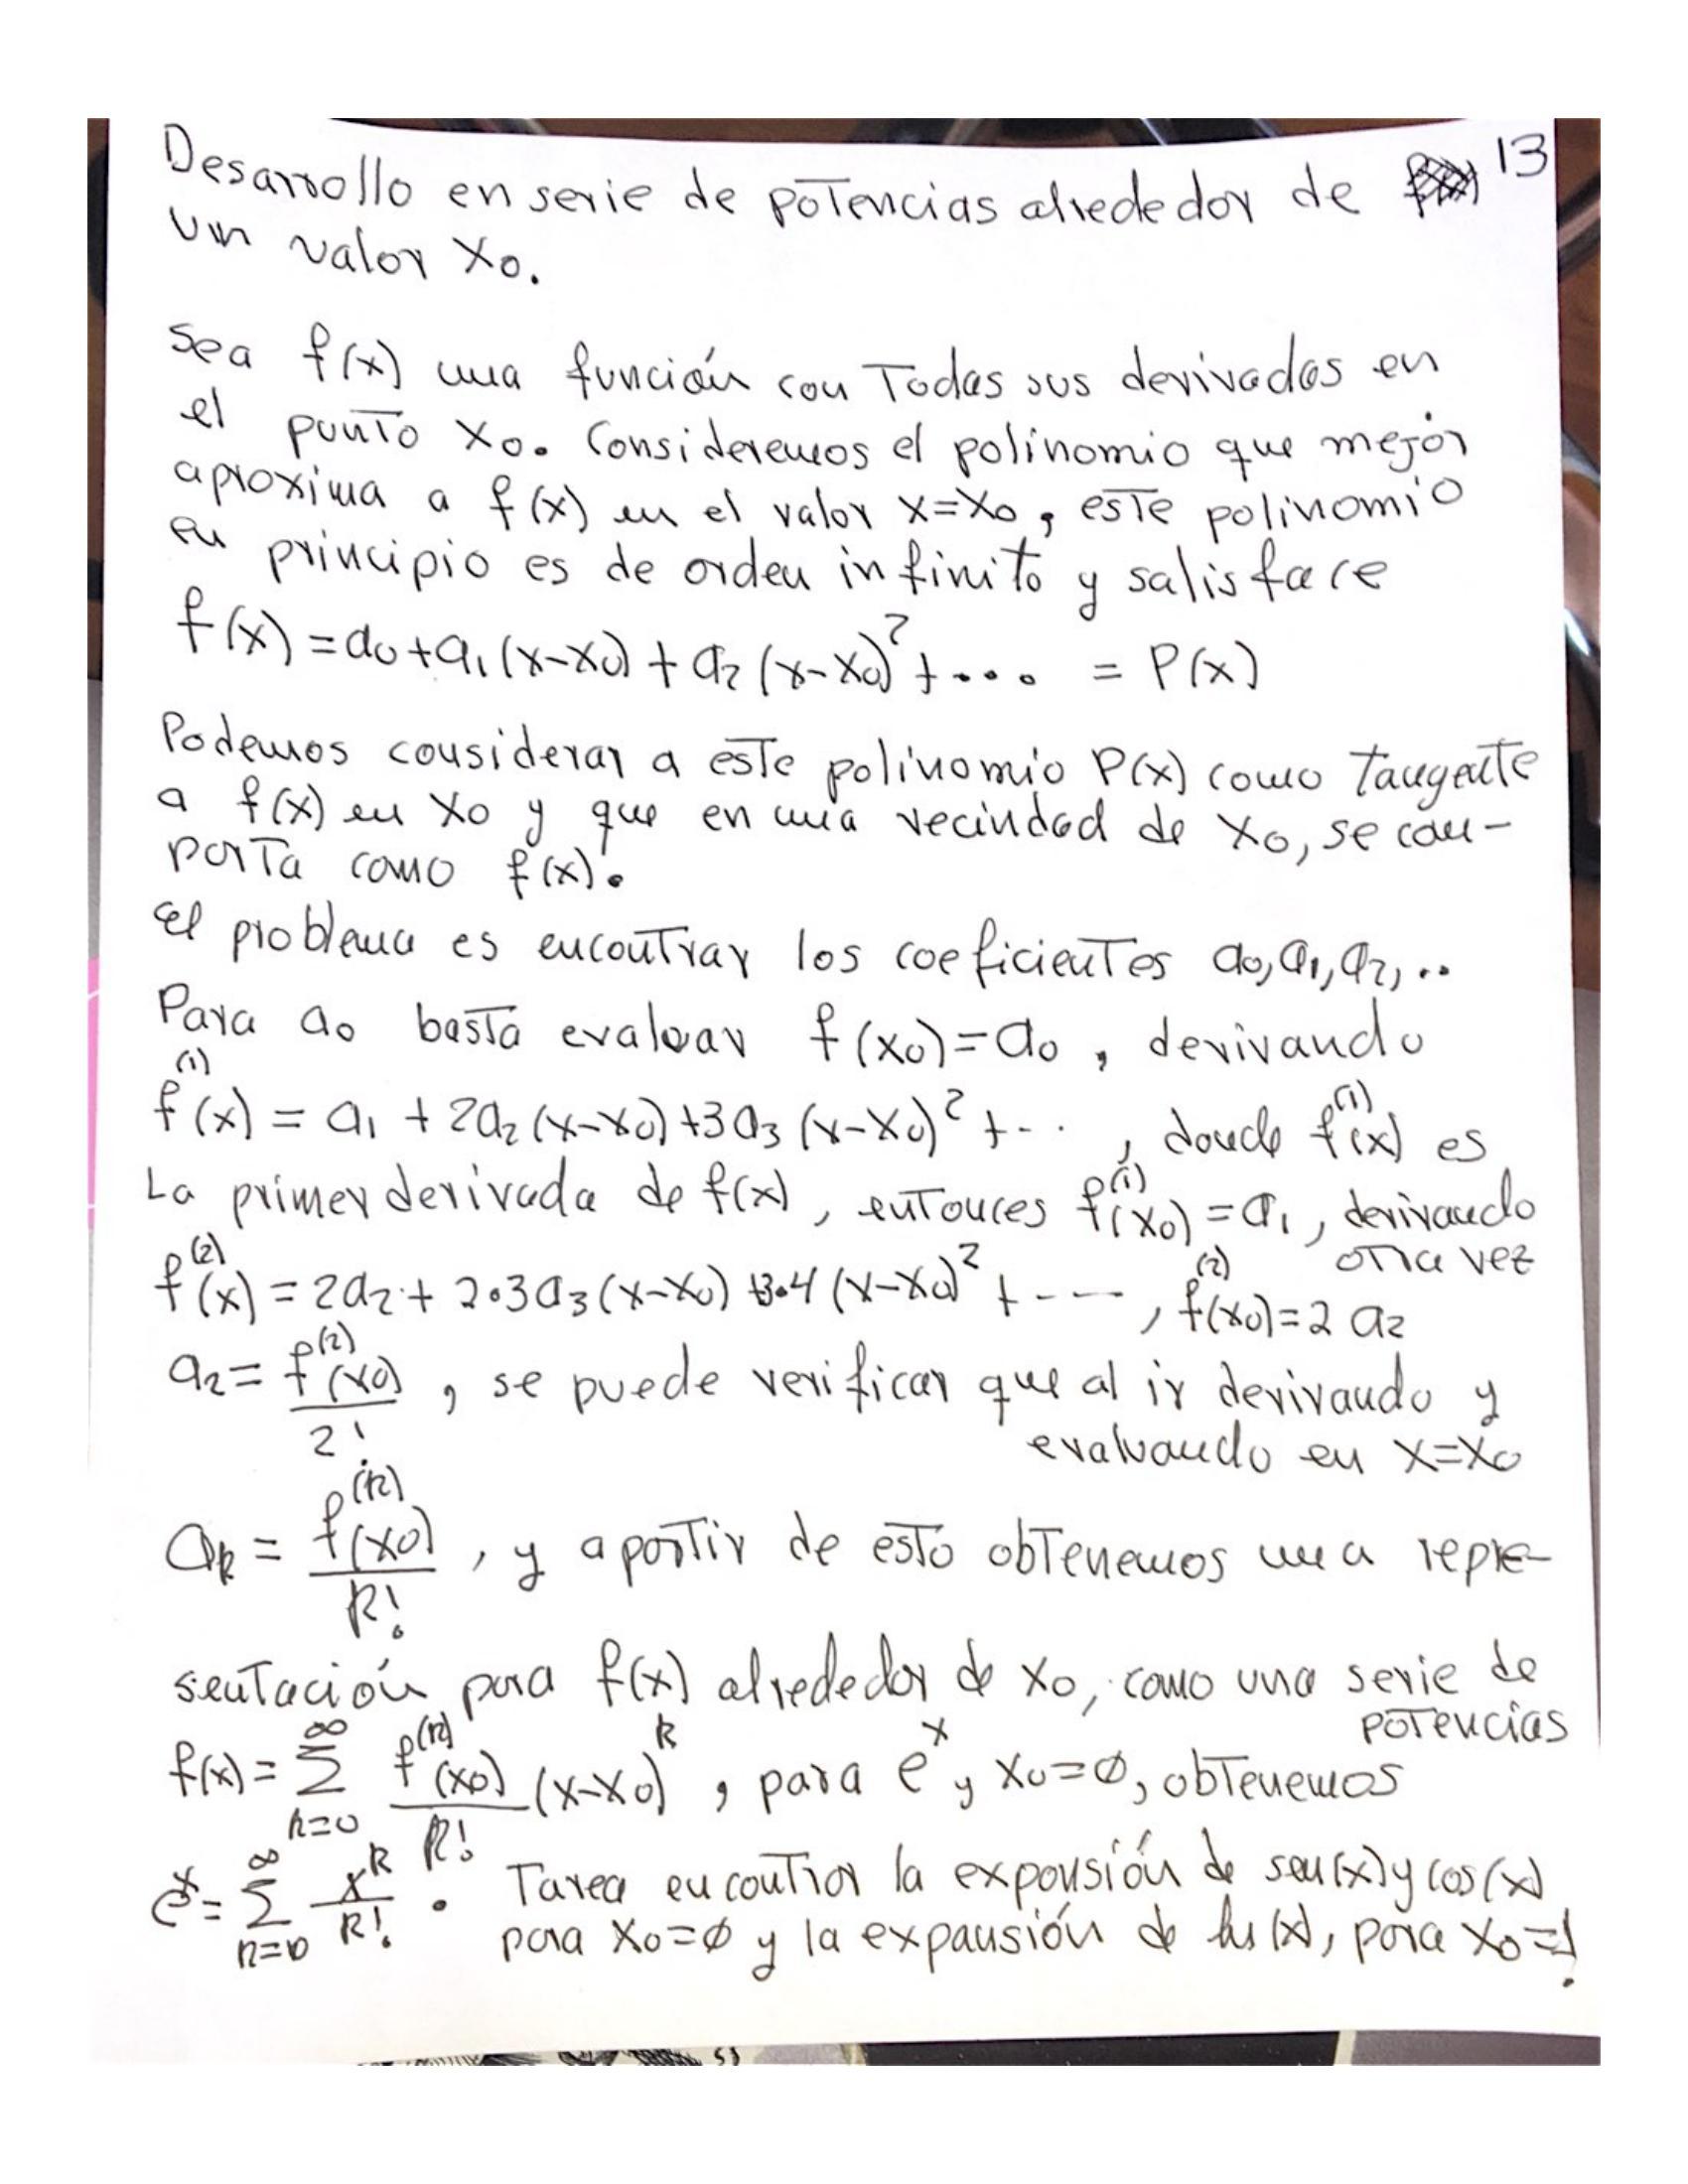 13
Desarrollo en serie de potencias alrededor de
un valor x₀.
Sea f(x) una función con Todas sus derivadas en
el punto x₀. Consideremos el polinomio que mejor
aproxima a f(x) en el valor x=x₀, este polinomio
en principio es de orden infinito y satisface
f(x) = a₀+a₁(x-x₀) + a₂(x-x₀)² + .... = P(x)
Podemos considerar a este polinomio P(x) como tangente
a f(x) en x₀ y que en una vecindad de x₀, se com-
porta como f(x).
El problema es encontrar los coeficientes a₀, a₁, a₂, ..
Para a₀ basta evaluar f(x₀)=a₀, derivando
f⁽¹⁾(x) = a₁ + 2a₂(x-x₀)+3a₃(x-x₀)² + -.. , donde f⁽¹⁾(x) es
La primer derivada de f(x), entonces f⁽¹⁾(x₀) = a₁, derivando
otra vez
f⁽²⁾(x) = 2a₂ + 2·3a₃(x-x₀) +3·4(x-x₀)² + ---- , f⁽²⁾(x₀)=2 a₂
a₂ = f⁽²⁾(x₀)/2! , se puede verificar que al ir derivando y
evaluando en x=x₀
aₖ = f⁽ᵏ⁾(x₀)/k! , y a partir de esto obtenemos una repre-
sentación para f(x) alrededor de x₀, como una serie de
potencias
f(x) = ∑_{k=0}^{∞} f⁽ᵏ⁾(x₀)/k! (x-x₀)ᵏ , para eˣ y x₀=∅, obtenemos
eˣ = ∑_{k=0}^{∞} xᵏ/k! . Tarea encontrar la expansión de sen(x) y cos(x)
para x₀=∅ y la expansión de ln(x), para x₀=1.